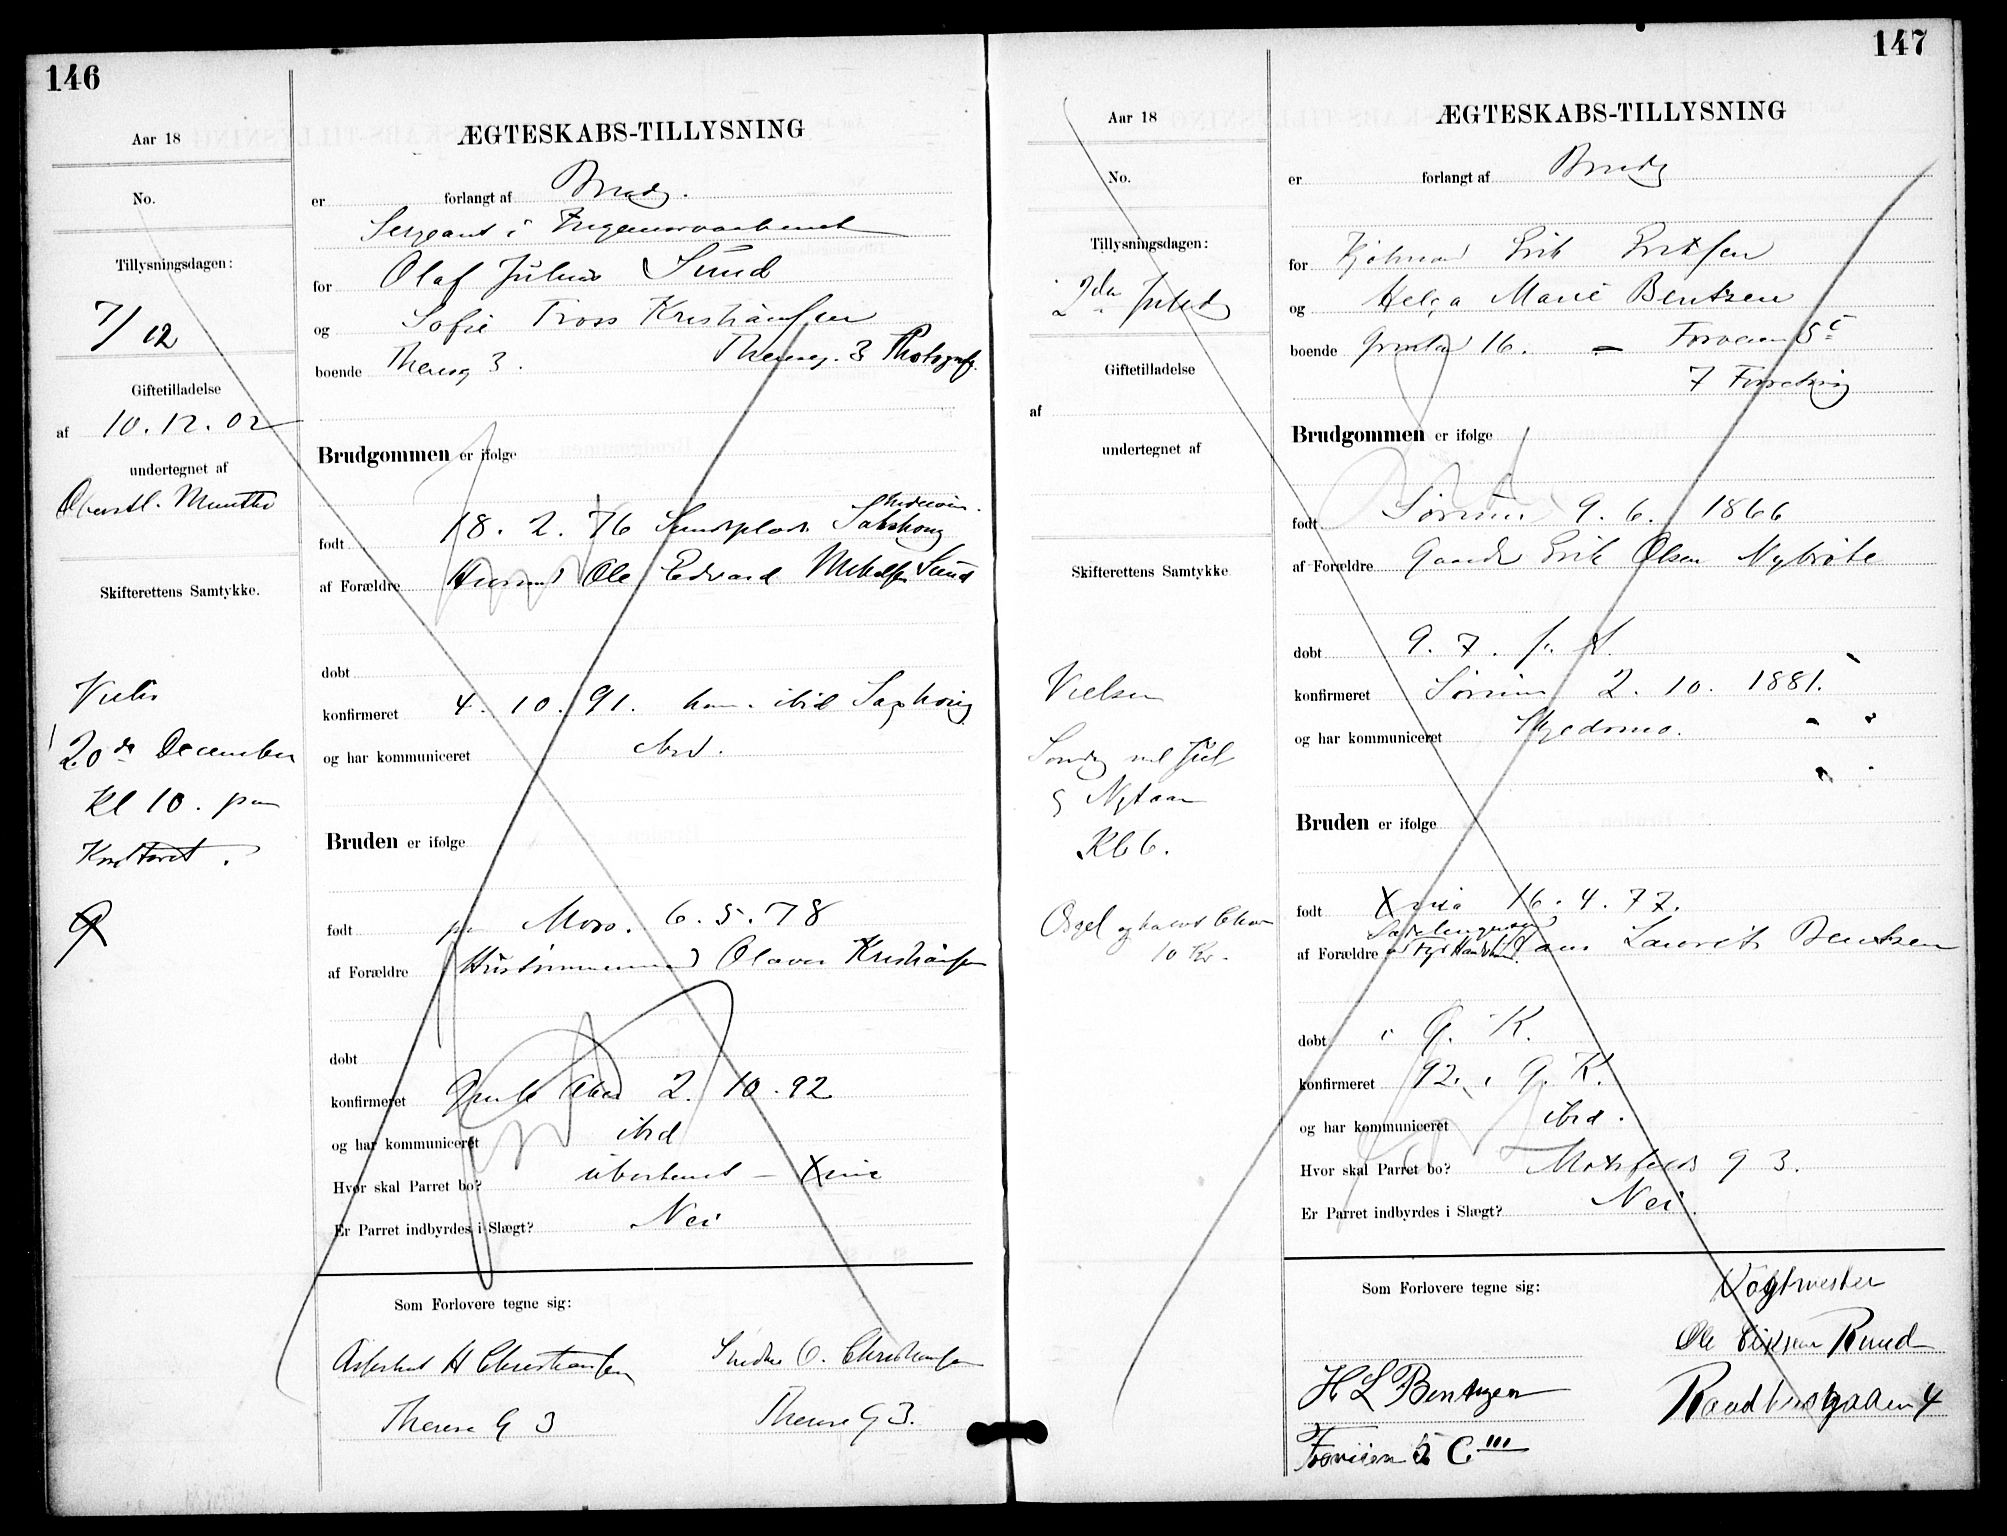 146
Aar 18
No.
Tillysningsdagen:
7/12
Giftetilladelse
af 10.12.02
undertegnet af
Oberstl. Munthe
Skifterettens Samtykke.
Vies
20de December
Kl 10. paa
Kontoret.
ÆGTESKABS-TILLYSNING
er forlangt af Brudg.
Sergeant i Ingeniørvaabenet
for Olaf Julius Sund
og Sofie Tross Kristiansen
boende Theresg 3. Theresg. 3 Photograf.
Brudgommen er ifølge
født 18. 2. 76 Sundsplads Sakshoug
af Forældre Husmd Ole Edvard Mikalsen Sund
døbt
konfirmeret 4. 10. 91. ibid
og har kommuniceret ibid.
Bruden er ifølge
født paa Moss. 6. 5. 78
af Forældre Hustømmermand Olaves Kristiansen
døbt
konfirmeret Gamle Aker 2. 10. 92
og har kommuniceret ibid
Hvor skal Parret bo? ubestemt – Xnia
Er Parret indbyrdes i Slægt? Nei
Som Forlovere tegne sig:
H Christiansen O. Christiansen
Therese G 3 Therese G 3.
147
Aar 18
No.
Tillysningsdagen:
2den Juled
Giftetilladelse
af
undertegnet af
Skifterettens Samtykke
Vielsen
Søndg ml Jul
g Nytaar
Kl 6.
Orgel og halvt Chor
10 Kr.
ÆGTESKABS-TILLYSNING
er forlangt af Brudg
for Kjøbmand Erik Eriksen
og Helga Marie Bentzen
boende 16. – 5 c
7 Forretning
Brudgommen er ifølge
født Sørum 9. 6. 1866
af Forældre Gaardb Erik Olsen Nybråte
døbt 9. 7. s. A.
konfirmeret Sørum 2. 10. 1881.
og har kommuniceret Skedsmo.
Bruden er ifølge
født Xnia 16. 4. 77.
af Forældre Hans Laurits Bentzen
døbt i G. K.
konfirmeret 92. i G. K.
og har kommuniceret ibid.
Hvor skal Parret bo? Motzfeldts g 3.
Er Parret indbyrdes i Slægt? Nei.
Som Forlovere tegne sig:
Vagtmester
Ole Eriksen Ruud
H L Bentzen
Raadhusgaden 4
5 C III